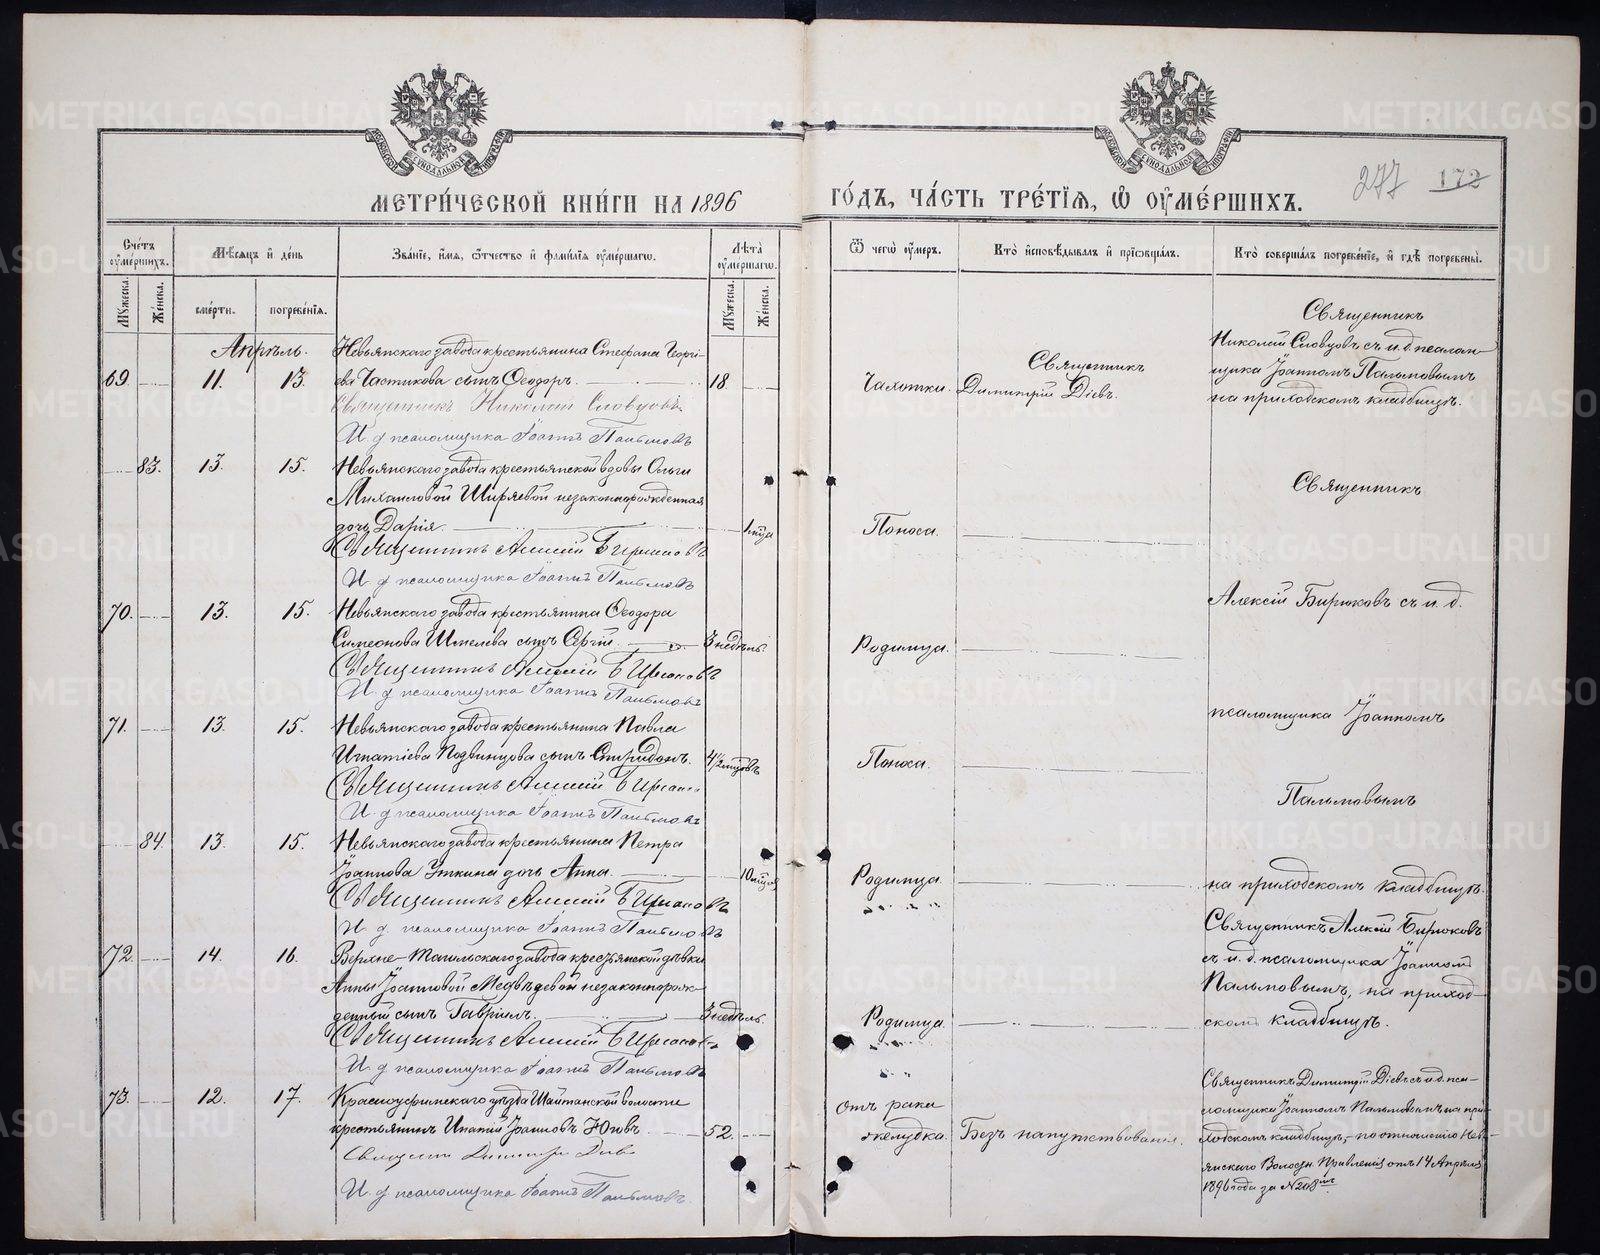 МЕТРИ́ЧЕСКОЙ КНИ́ГИ НА 1896
ГО́ДЪ, ЧА́СТЬ ТРЕ́ТІѦ, Ѡ҆ ОУ҆МЕ́РШИХЪ.
277 172
Сче́тъ оу҆ме́ршихъ.
Мѣ́сяцъ и҆ де́нь
Зва́ніе, и҆́мя, ѻ҆́тчество и҆ фами́лія оу҆ме́ршагѡ.
Лѣ́та оу҆ме́ршагѡ.
Ѿ чегѡ̀ оу҆́меръ.
Кто̀ и҆сповѣ́дывалъ и҆ прїѡбща́лъ.
Кто̀ соверша́лъ погребе́ніе, и҆ гдѣ̀ погребены̀.
Мꙋ́жеска.
Же́нска.
сме́рти.
погребе́нія.
Мꙋ́жеска.
Же́нска.
Апрѣль.
69. 11. 13.
Невьянскаго завода крестьянина Стефана Георгі-
ева Частикова сынъ Ѳеодоръ. 18.
Священникъ Николай Словцовъ.
И. д. псаломщика Іоаннъ Пальмовъ
Чахотки.
Священникъ
Димитрій Діевъ.
Священникъ
Николай Словцовъ съ и. д. псалом-
щика Іоанномъ Пальмовымъ
на приходскомъ кладбищѣ.
83. 13. 15.
Невьянскаго завода крестьянской вдовы Ольги
Михаиловой Ширяевой незаконнорожденная
дочь Дарія. 1 мѣсяца
Священникъ Алексій Бирюковъ
И. д. псаломщика Іоаннъ Пальмовъ
Поноса.
Священникъ
70. 13. 15.
Невьянскаго завода крестьянина Ѳеодора
Симеонова Шмелева сынъ Сергій. 3 недѣль.
Священникъ Алексій Бирюковъ
И. д. псаломщика Іоаннъ Пальмовъ
Родимца.
Алексій Бирюковъ съ и. д.
71. 13. 15.
Невьянскаго завода крестьянина Павла
Игнатіева Подвинцова сынъ Спиридонъ. 4½ мѣсяцевъ
Священникъ Алексій Бирюковъ
И. д. псаломщика Іоаннъ Пальмовъ
Поноса.
псаломщика Іоанномъ
Пальмовымъ
84. 13. 15.
Невьянскаго завода крестьянина Петра
Іоаннова Уткина дочь Анна. 10
Священникъ Алексій Бирюковъ
И. д. псаломщика Іоаннъ Пальмовъ
Родимца.
на приходскомъ кладбищѣ.
72. 14. 16.
Верхне-Тагильскаго завода крестьянской дѣвки
Анны Іоанновой Медвѣдевой незаконнорож-
денный сынъ Гавріилъ. 3 недѣль.
Священникъ Алексій Бирюковъ
И. д. псаломщика Іоаннъ Пальмовъ
Родимца.
Священникъ Алексій Бирюковъ
съ и. д. псаломщика Іоанномъ
Пальмовымъ, на приход-
скомъ кладбищѣ.
73. 12. 17.
Красноуфимскаго уѣзда Шайтанской волости
крестьянинъ Ипатій Іоанновъ Юговъ 52.
Священникъ Димитрій Діевъ
И. д. псаломщика Іоаннъ Пальмовъ.
отъ рака
желудка.
Безъ напутствованія.
Священникъ Димитрій Діевъ съ и. д. пса-
ломщика Іоанномъ Пальмовымъ на при-
ходскомъ кладбищѣ, по отношенію Невь-
янскаго Волостн. Правленія отъ 14 Апрѣля
1896 года за №